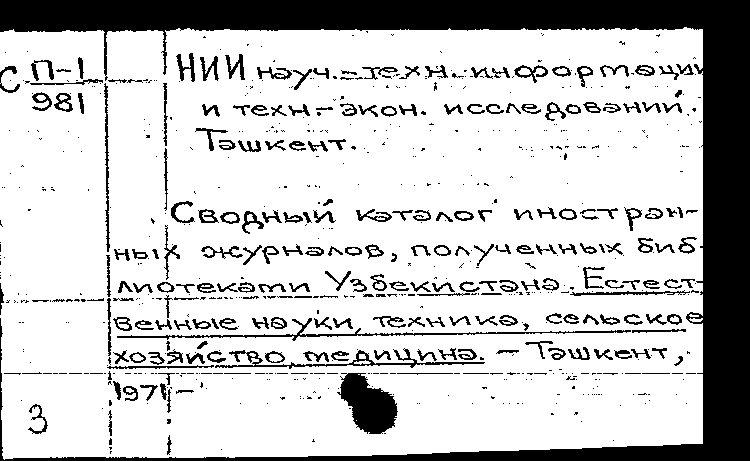 С П-1
981
НИИ науч.-техн. информации
и техн.-экон. исследований.
Ташкент.
Сводный каталог иностран-
ных журналов, полученных биб-
лиотеками Узбекистана. Естест-
венные науки, техника, сельское
хозяйство, медицина. – Ташкент,
1971 –
3